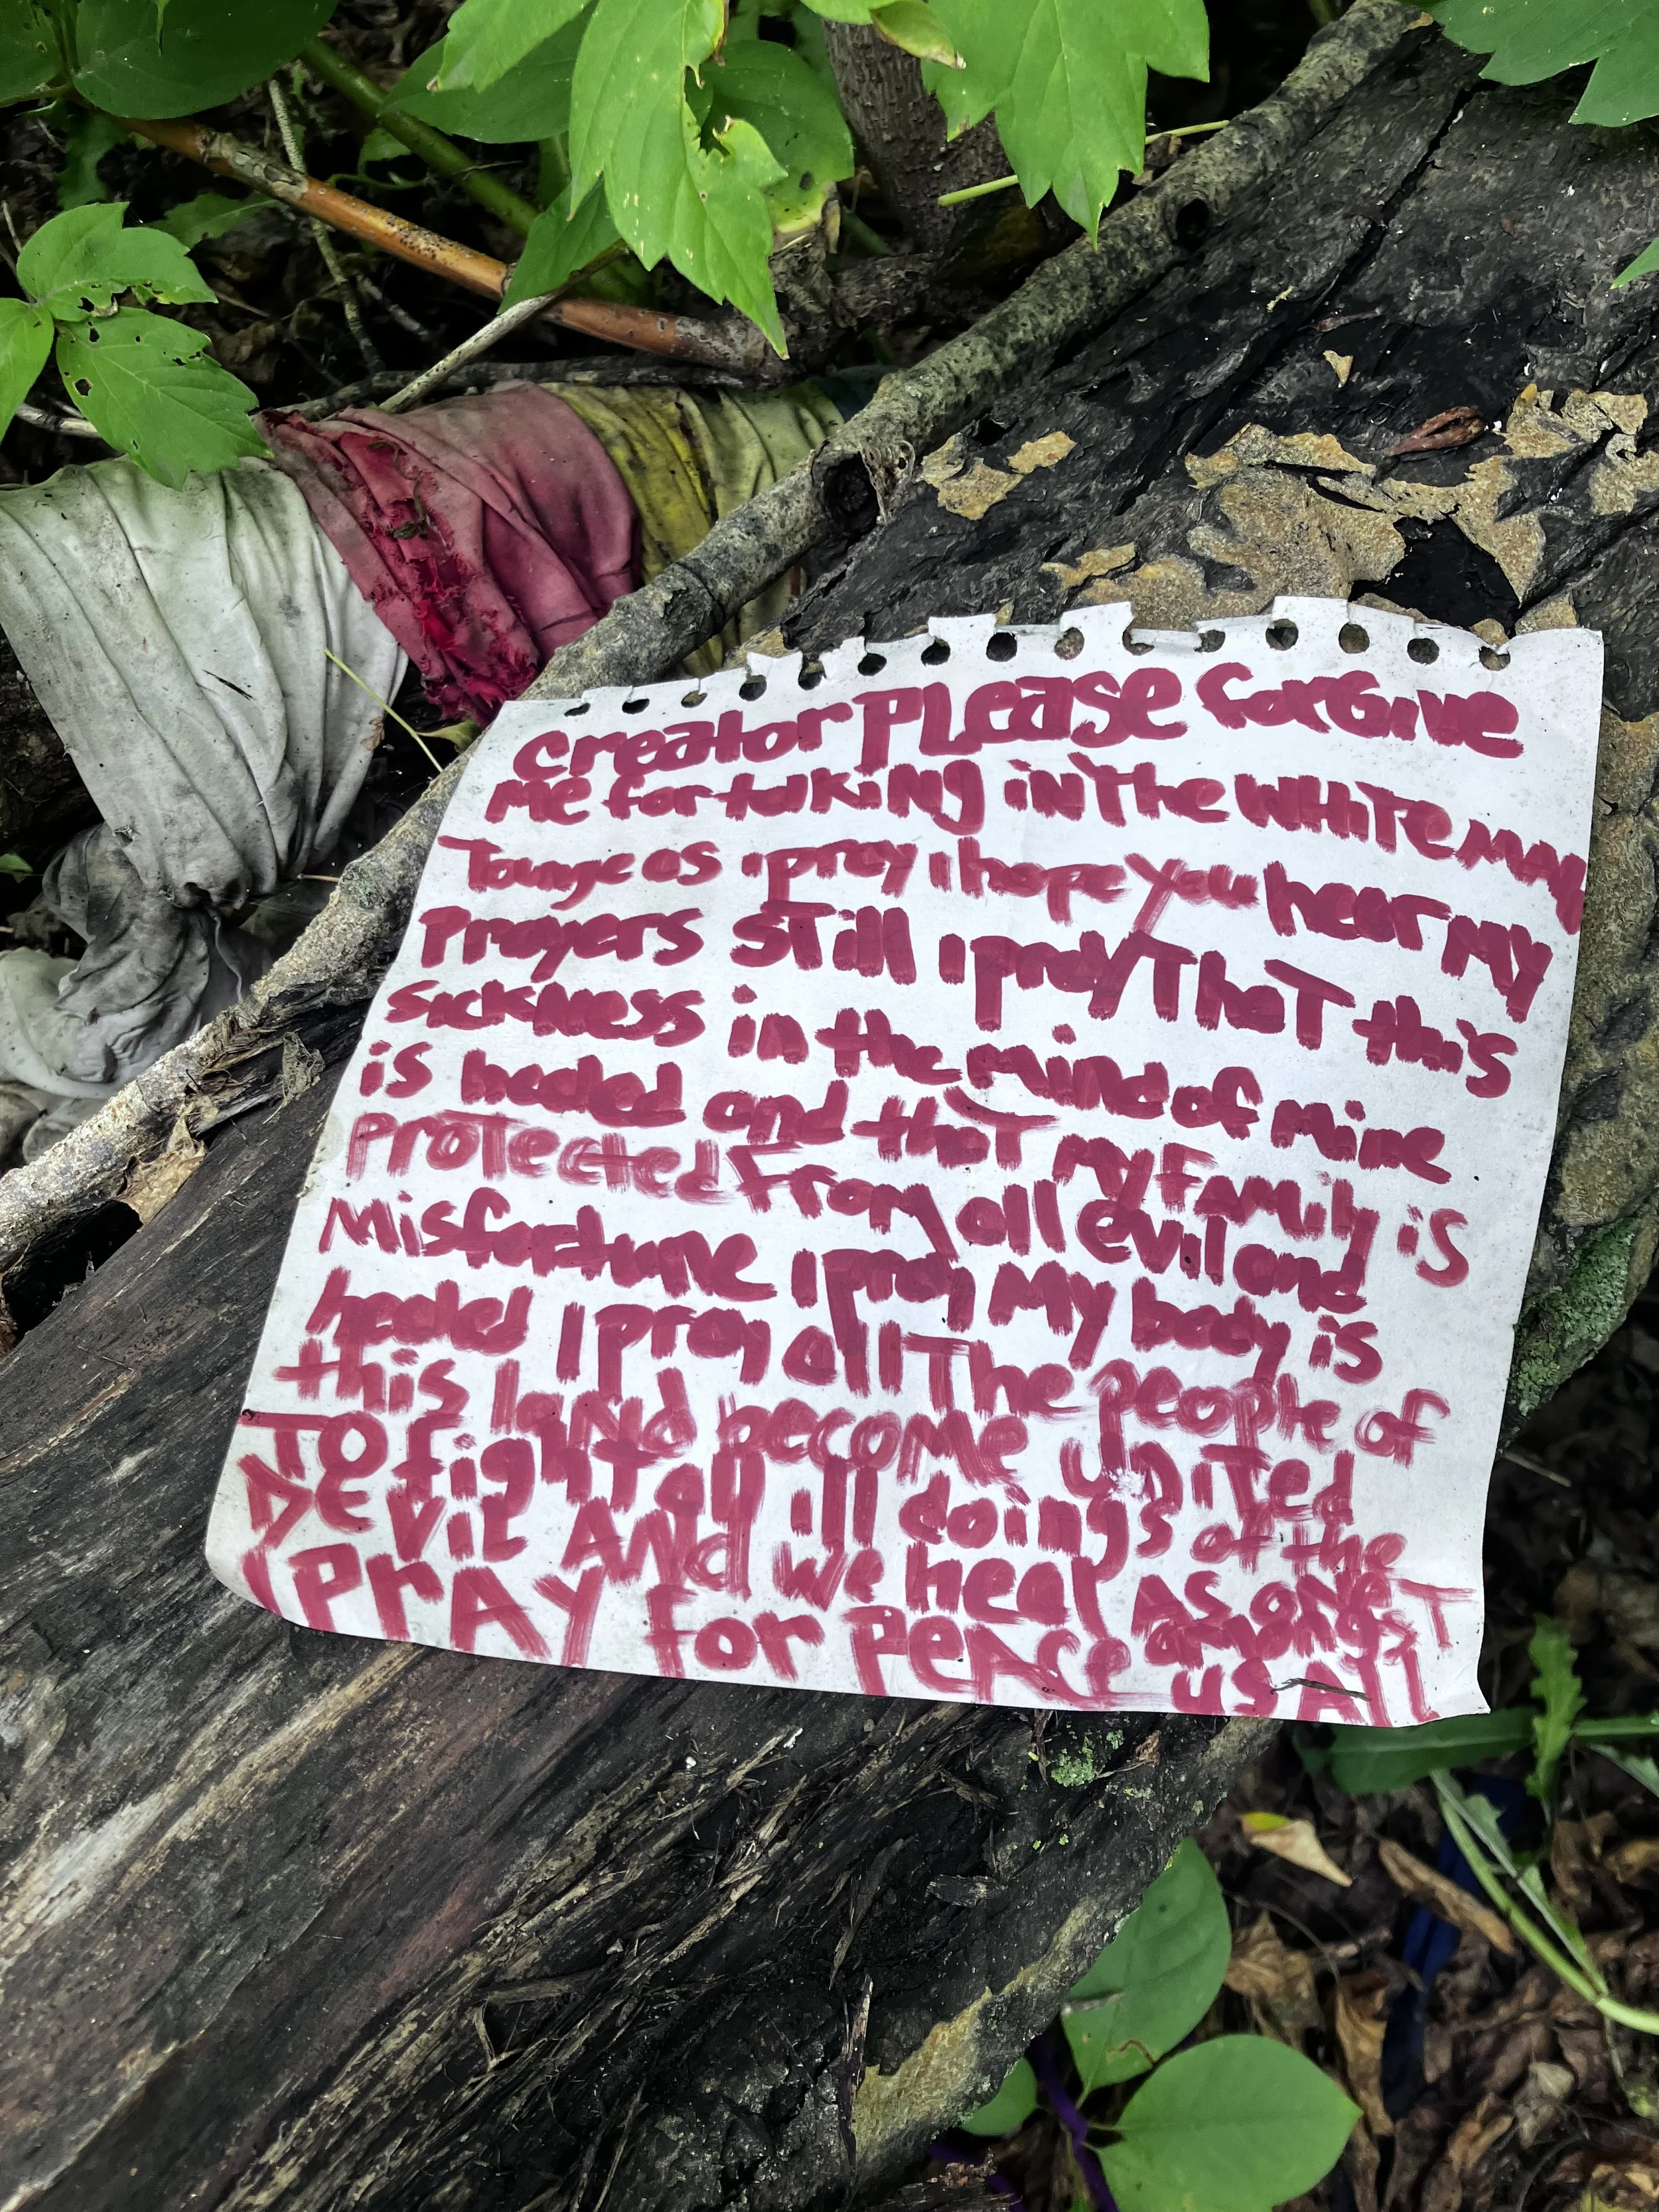 creator PLease forGive
Me for talkiNg iN The WHiTe MAN
Tounge as i pray i hope You hear MY
Prayers STill i pray ThaT this
sickNess in the Mind of Mine
is healed and thaT my FaMily iS
ProTected from all evil and
Misfortune i pray My body is
healed I pray all The people of
this laNd become uniTed
TO fighT all ill doings of the
DEVil ANd we heal AS one
I PrAY for PeAce amongsT
us All